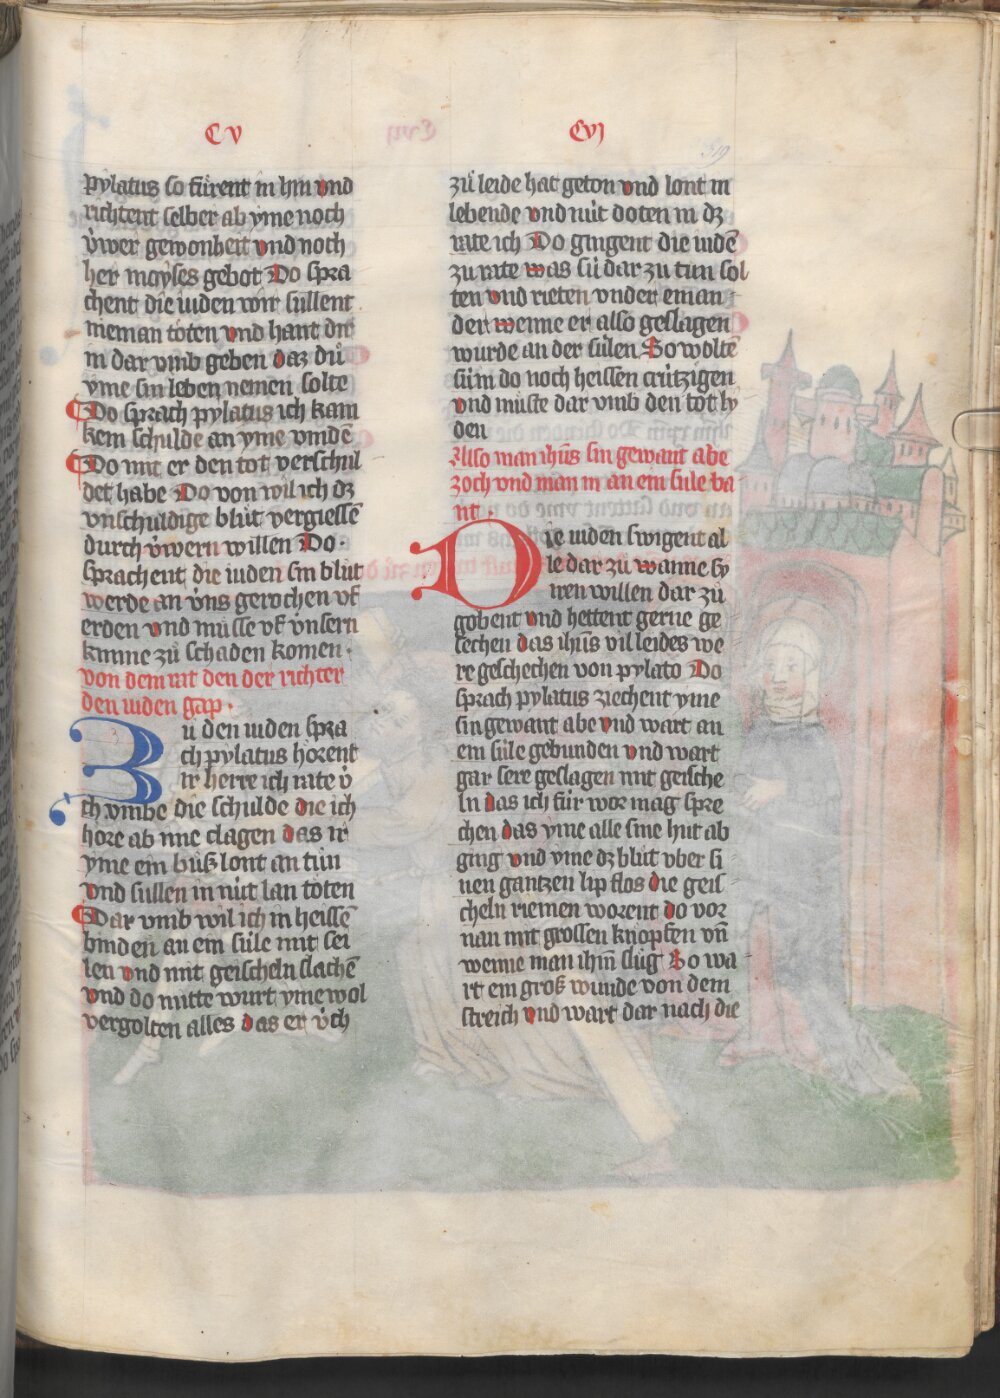 CV
pylatus so fu̍rent in hin vnd
richtent selber ab yme noch
u̍wer gewonheit vnd noch
her moyses gebot Do spra
chent die iuden wir sullent
nieman toͤten vnd hant dir
in dar vmb geben daz du̍
yme sin leben nemen solte
Do sprach pylatus ich kam
kem schulde an yme vindē
Do mit er den tot verschul
det habe Do von wil ich dz
vnschuldige blůt vergiessē
durch u̍wern willen Do
sprachent die iuden sin blůt
werde an u̍ns gerochen vf
erden vnd mu̍sse vf u̍nsern
kinne zů schaden komen
von dem rat den der richter
den iuden gap
Zu den iuden spra
ch pylatus hoͤrent
ir herre ich rate u̍
ch vmbe die schulde die ich
hoͤre ab ime clagen das ir
yme ein bůß lont an tůn
vnd sullen in nu̍t lan toͤten
Dar vmb wil ich in heissē
binden an ein su̍le mit sei
len vnd mit geischeln slachē
vnd do mitte wurt yme wol
vergolten alles das er u̍ch
CVI
319
zů leide hat geton vnd lont in
lebende vnd nu̍t doten in dz
rate ich Do gingent die iudē
zu rate was su̍ dar zu tůn sol
ten vnd rieten vnder einan
der wenne er also geslagen
wurde an der su̍len So woltē
su̍ in do noch heissen cru̍tzigen
vnd mu̍ste dar vmb den tot ly
den
Also man ihūs sin gewant abe
zoch vnd man in an ein sule ba
nt
Die iuden swigent al
le dar zů wanne sy
iren willen dar zů
gobent vnd hettent gerne ge
sechen das ihūs vil leides we
re geschechen von pylato Do
sprach pylatus ziechent yme
sin gewant abe vnd wart an
ein su̍le gebunden vnd wart
gar sere geslagen mit geische
ln das ich fu̍r wor mag spre
chen das yme alle sine hut ab
ging vnd yme dz blůt vber si
nen gantzen lip flos die geis
cheln riemen worent do vor
nan mit grossen knoͤpfen vn̄
wenne man ihm̄ slůg So wa
rt ein groß wunde von dem
streich vnd wart dar nach die